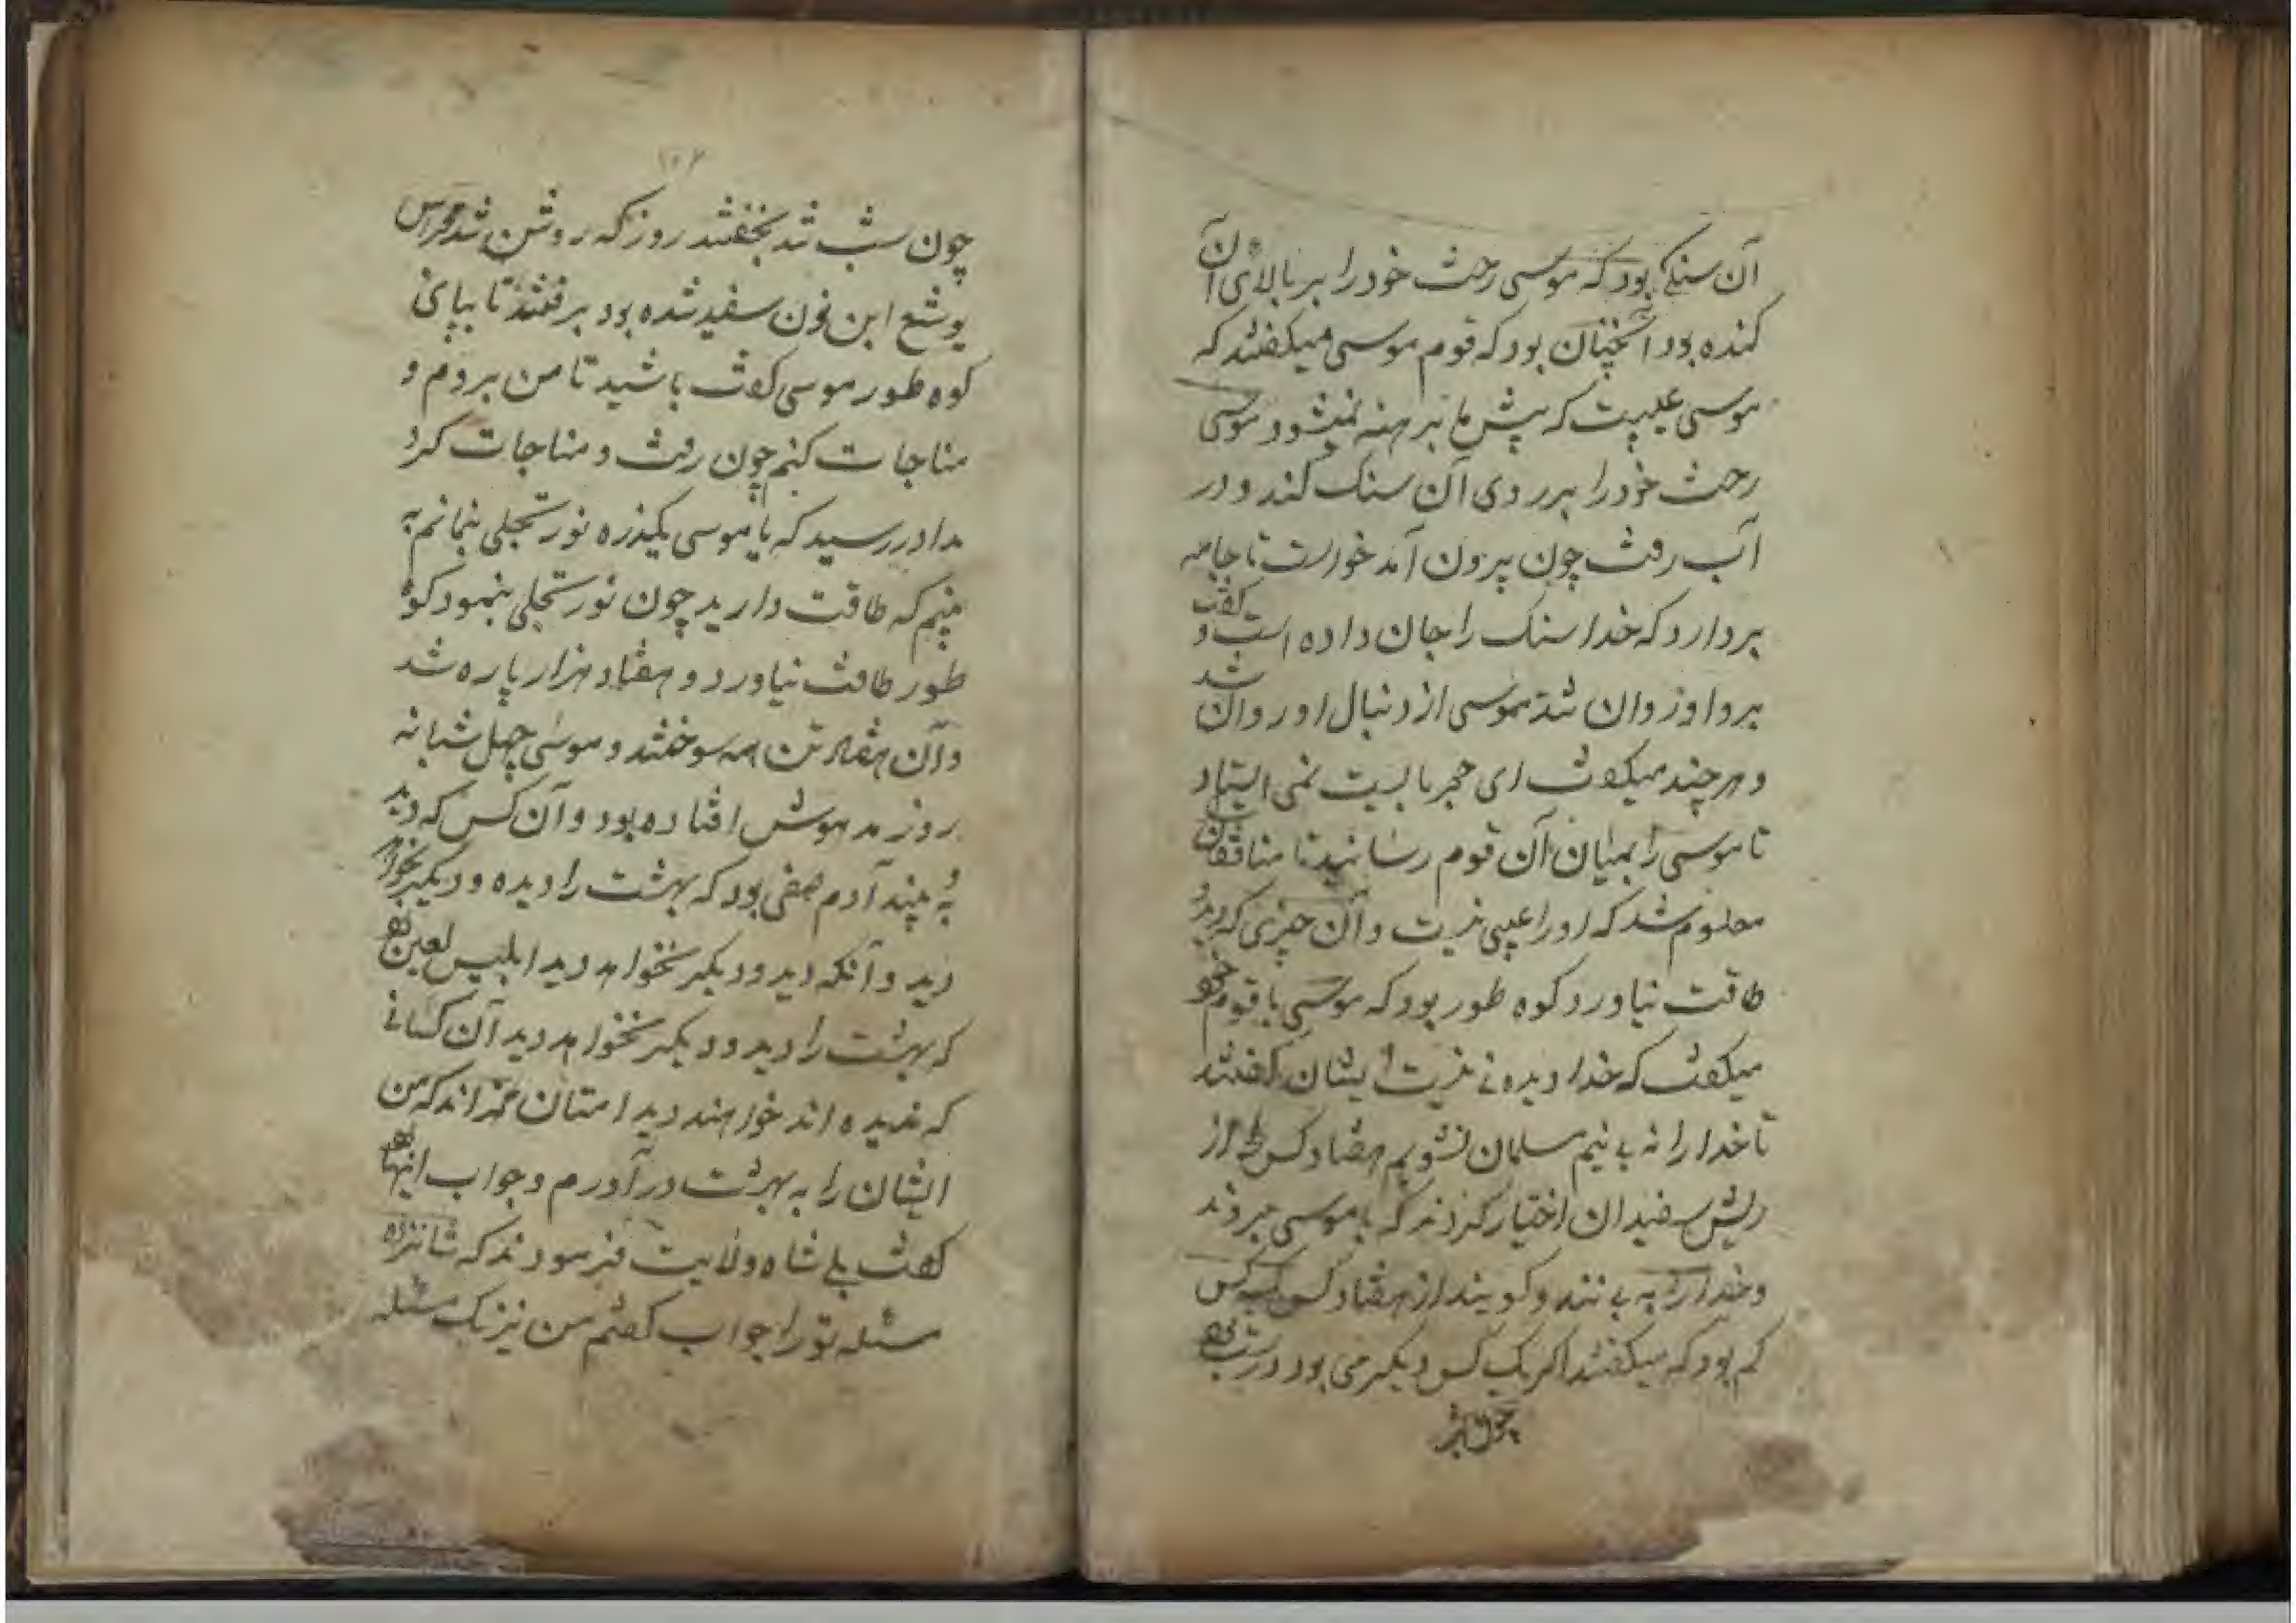 آن سنکی بود که موسی رخت خود را بر بالای آن
کنده بود آنچنان بود که قوم موسی میکفتند که
موسی عیبیست که پیش ما برهنه نمیشود موسی
رخت خود را بر روی آن سنک کند و در
آب رفت چون بیرون آمد خواست تا جامه
بردارد که خدا سنک را جان داده است و کفت
برو او روان شد موسی از دنبال او روان شد
و هرچند میکفت ای حجر بایست نمی ایستاد
تا موسی را بمیان آن قوم رسانید تا منافقان
معلوم شد که او را عیبی نیست و آن چیزی که دید و
طاقت نیاورد کوه طور بود که موسی با قوم خود
میکفت که خدا دیده نی نیست ایشان کفتند
تا خدا را نه بینیم مسلمان نشویم هفتاد کس از
ریش سفیدان اختیار کردند که با موسی بروند
و خدا را به بینند و کویند از هفتاد کس یک کس
کم بود که میکفتند اکر یک کس دیکر می بود درست
چون شب
۱۰۲
چون شب شد بخفتند روز که روشن شد سر
یوشع ابن نون سفید شده بود برفتند تا بپای
کوه طور موسی کفت باشید تا من بروم و
مناجات کنم چون رفت و مناجات کرد
ندا در رسید که یا موسی یکذره نور تجلی بنمانم به
بینم که طاقت دارید چون نور تجلی بنمود کوه
طور طاقت نیاورد و هفتاد هزار پاره شد
و آن هفتاد تن همه سوختند و موسی چهل شبانه
روز مدهوش افتاده بود و آن کس که دید
و به بیند آدم صفی بود که بهشت را دیده و دیکر بخواهد
دید و آنکه دید و دیکر نخواهد دید ابلیس لعین بود
که بهشت را دید و دیکر نخواهد دید آن کسانی
که ندیده اند خواهند دید امتان محمد اند که من
ایشان را به بهشت در آورم و جواب اینها بود
کفت بلی شاه ولایت فرمودند که شانزده
مسئله تو را جواب کفتم من نیز یک مسئله